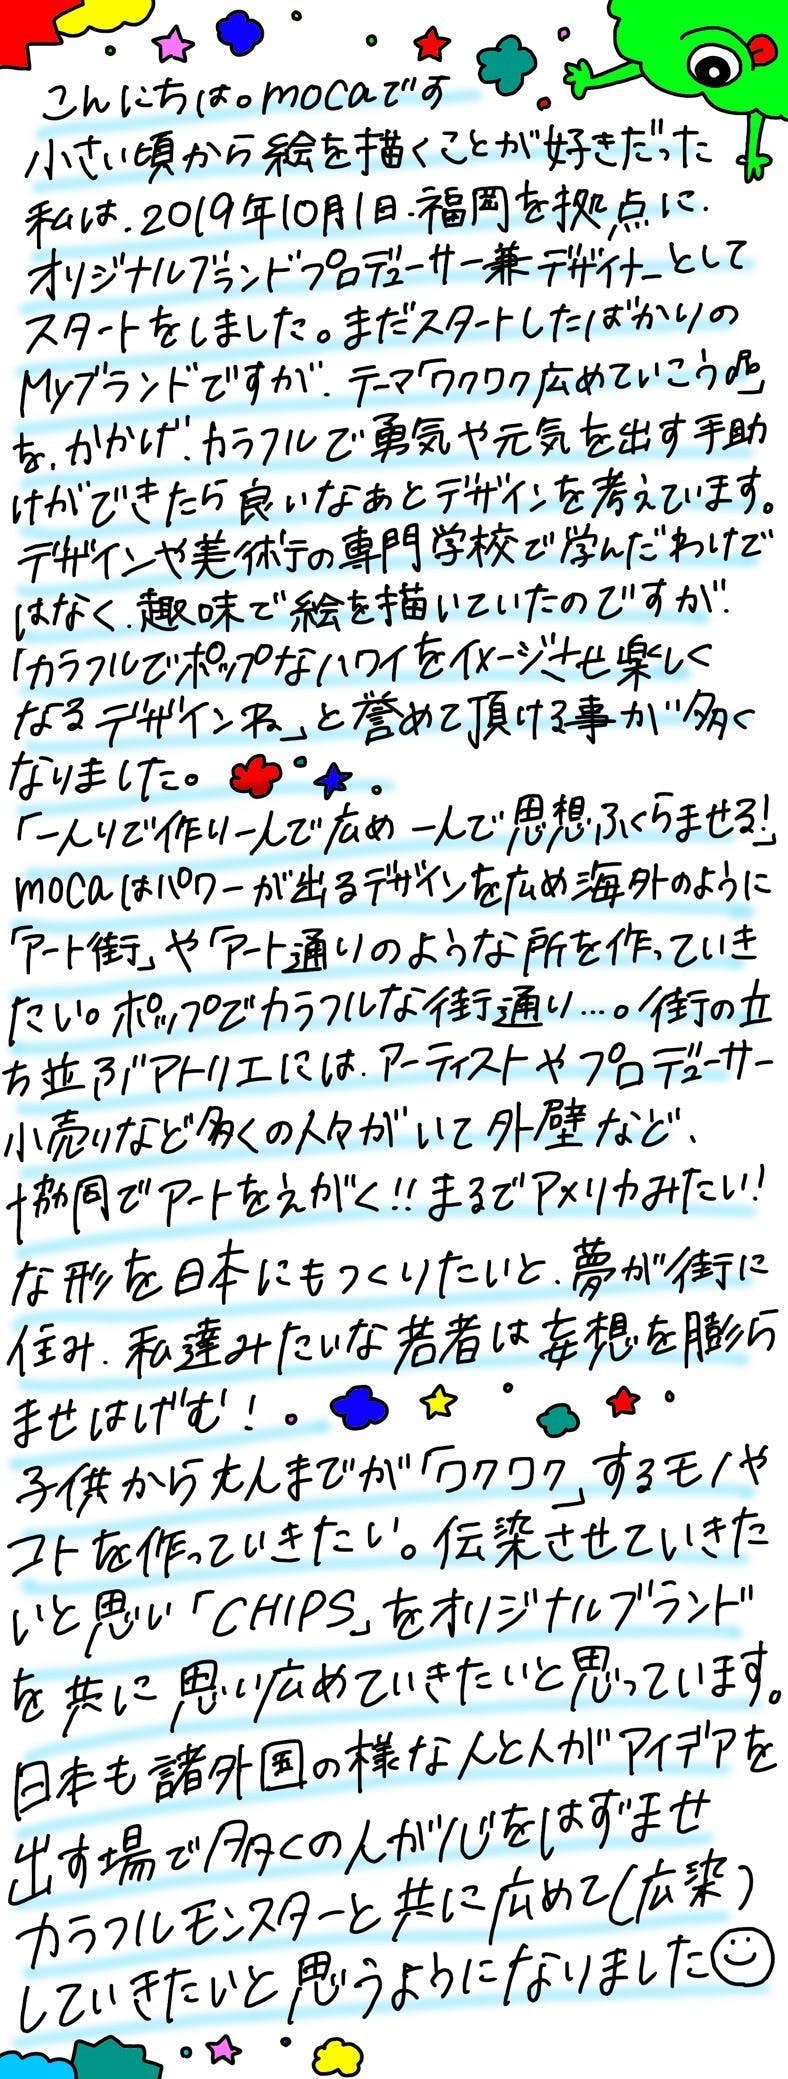 こんにちは。mocaです
小さい頃から絵を描くことが好きだった
私は、2019年10月1日、福岡を拠点に、
オリジナルブランドプロデューサー兼デザイナーとして
スタートをしました。まだスタートしたばかりの
Myブランドですが、テーマ「ワクワク広めていこう」
を、かかげ、カラフルで勇気や元気を出す手助
けができたら良いなぁとデザインを考えています。
デザインや美術の専門学校で学んだわけで
はなく、趣味で絵を描いていたのですが、
「カラフルでポップなハワイをイメージさせ楽しく
なるデザインね」と誉めて頂ける事が多く
なりました。
「一人りで作り一人で広め 一人で思想ふくらませる!」
mocaはパワーが出るデザインを広め海外のように
「アート街」や「アート通りのような所を作っていき
たい。ポップでカラフルな街通り…。街の立
ち並ぶアトリエには、アーティストやプロデューサー
小売りなど多くの人々がいて外壁など、
協同でアートをえがく!!まるでアメリカみたい!
な形を日本にもつくりたいと、夢が街に
住み、私達みたいな若者は妄想を膨ら
ませはげむ!
子供から大人までが「ワクワク」するモノや
コトを作っていきたい。伝染させていきた
いと思い「CHIPS」をオリジナルブランド
を共に思い広めていきたいと思っています。
日本も諸外国の様な人と人がアイデアを
出す場で多くの人が心をはずませ
カラフルモンスターと共に広めて(広染)
していきたいと思うようになりました